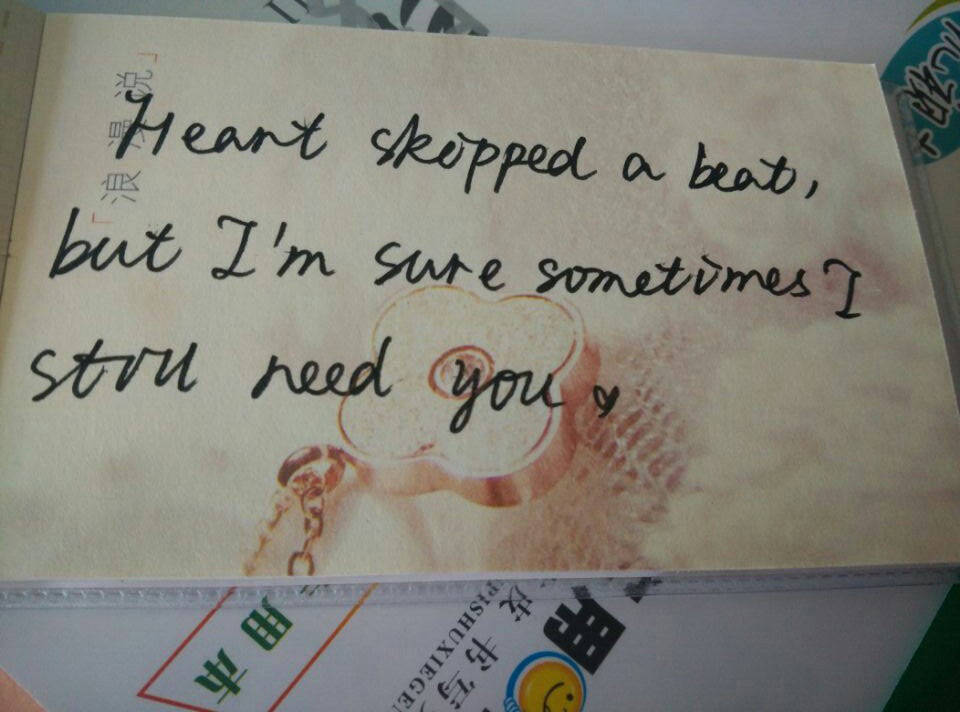 Heart skipped a beat,
but I'm sure sometimes I
still need you
「浪漫说」
用本
用
皮书写
PISHUXIEGE